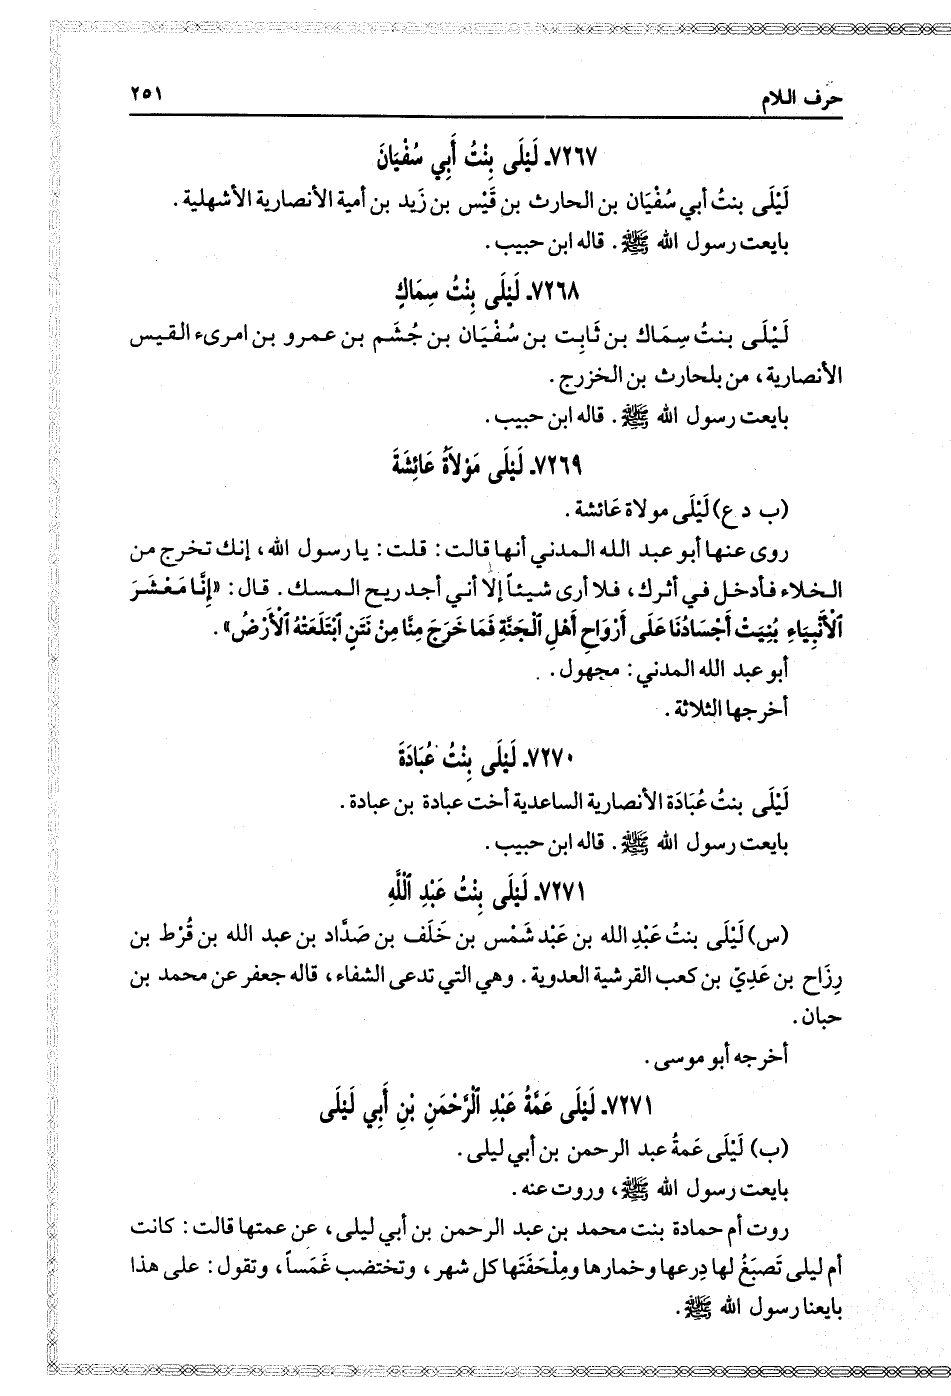 حرف اللام ٢٥١
٧٢٦٧ـ لَيْلَى بِنْتُ أَبِي سُفْيَانَ
لَيْلَى بنتُ أبي سُفْيَان بن الحارث بن قَيْس بن زَيد بن أمية الأنصارية الأشهلية.
بايعت رسول الله ﷺ. قاله ابن حبيب.
٧٢٦٨ـ لَيْلَى بِنْتُ سِمَاكٍ
لَيْلَى بنتُ سِمَاك بن ثَابِت بن سُفْيَان بن جُشَم بن عمرو بن امرىء القيس
الأنصارية، من بلحارث بن الخزرج.
بايعت رسول الله ﷺ. قاله ابن حبيب.
٧٢٦٩ـ لَيْلَى مَوْلاَةُ عَائِشَةَ
(ب د ع) لَيْلَى مولاة عَائشة.
روى عنها أبو عبد الله المدني أنها قالت: قلت: يا رسول الله، إنك تخرج من
الخلاء فأدخل في أثرك، فلا أرى شيئاً إلا أني أجد ريح المسك. قال: «إِنَّا مَعْشَرَ
ٱلْأَنْبِيَاءِ بُنِيَتْ أَجْسَادُنَا عَلَى أَرْوَاحِ أَهْلِ ٱلْجَنَّةِ فَمَا خَرَجَ مِنَّا مِنْ نَتَنٍ ٱبْتَلَعَتْهُ ٱلْأَرْضُ».
أبو عبد الله المدني: مجهول.
أخرجها الثلاثة.
٧٢٧٠ـ لَيْلَى بِنْتُ عُبَادَةَ
لَيْلَى بنتُ عُبَادَة الأنصارية الساعدية أخت عبادة بن عبادة.
بايعت رسول الله ﷺ. قاله ابن حبيب.
٧٢٧١ـ لَيْلَى بِنْتُ عَبْدِ ٱللَّهِ
(س) لَيْلَى بنتُ عَبْدِ الله بن عَبْد شَمْس بن خَلَف بن صَدَّاد بن عبد الله بن قُرْط بن
رِزَاح بن عَدِيّ بن كعب القرشية العدوية. وهي التي تدعى الشفاء، قاله جعفر عن محمد بن
حبان.
أخرجه أبو موسى.
٧٢٧١ـ لَيْلَى عَمَّةُ عَبْدِ ٱلْرَّحْمَنِ بْنِ أَبِي لَيْلَى
(ب) لَيْلَى عَمةُ عبد الرحمن بن أبي ليلى.
بايعت رسول الله ﷺ، وروت عنه.
روت أم حمادة بنت محمد بن عبد الرحمن بن أبي ليلى، عن عمتها قالت: كانت
أم ليلى تَصبَغُ لها دِرعها وخمارها ومِلْحَفَتَها كل شهر، وتختضب غَمَساً، وتقول: على هذا
بايعنا رسول الله ﷺ.